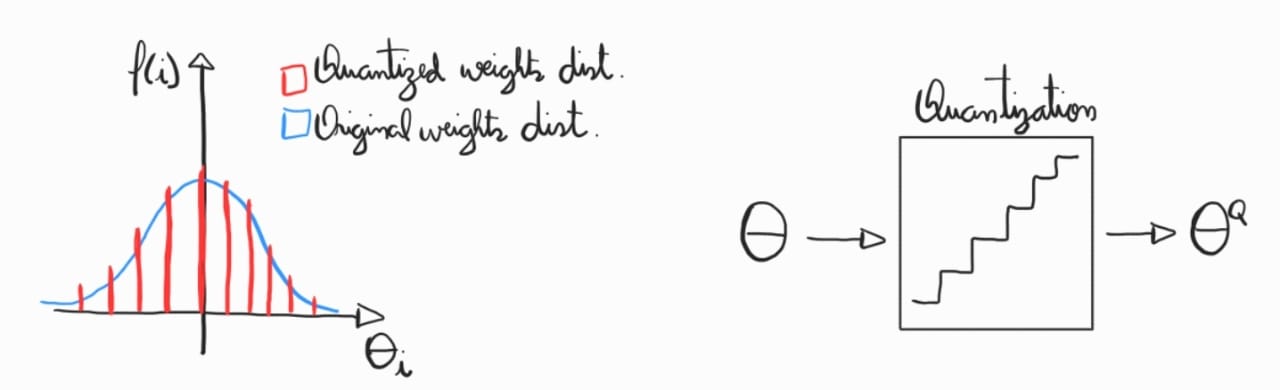 f(i)
Quantized weights dist.
Original weights dist.
θi
Quantization
θ
θQ